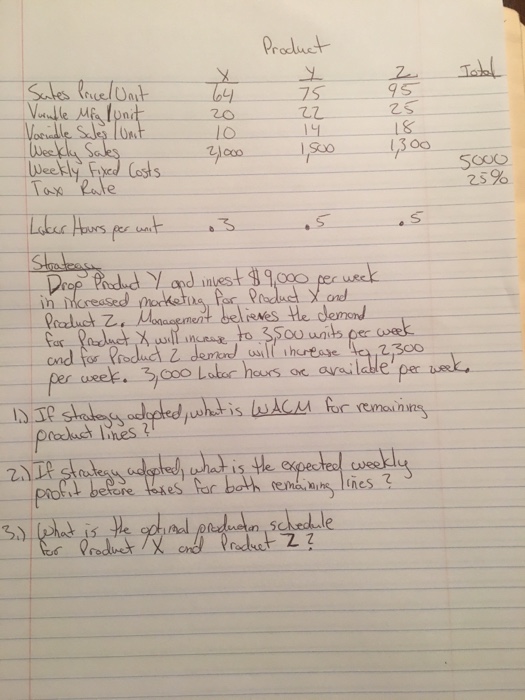 Product
X Y Z Total
Sales Price/Unit 64 75 95
Variable Mfg/unit 20 22 25
Variable Sales/Unit 10 14 18
Weekly Sales 2,1000 1,500 1,300
Weekly Fixed Costs 5000
Tax Rate 25%
Labor Hours per unit .3 .5 .5
Strategy
Drop Product Y and invest $9,000 per week
in increased marketing for Product X and
Product Z. Management believes the demand
for Product X will increase to 3,500 units per week
and for Product Z demand will increase to 2,300
per week. 3,000 Labor hours are available per week.
1.) If strategy adopted, what is WACM for remaining
product lines?
2.) If strategy adopted, what is the expected weekly
profit before taxes for both remaining lines?
3.) What is the optimal production schedule
for Product X and Product Z?